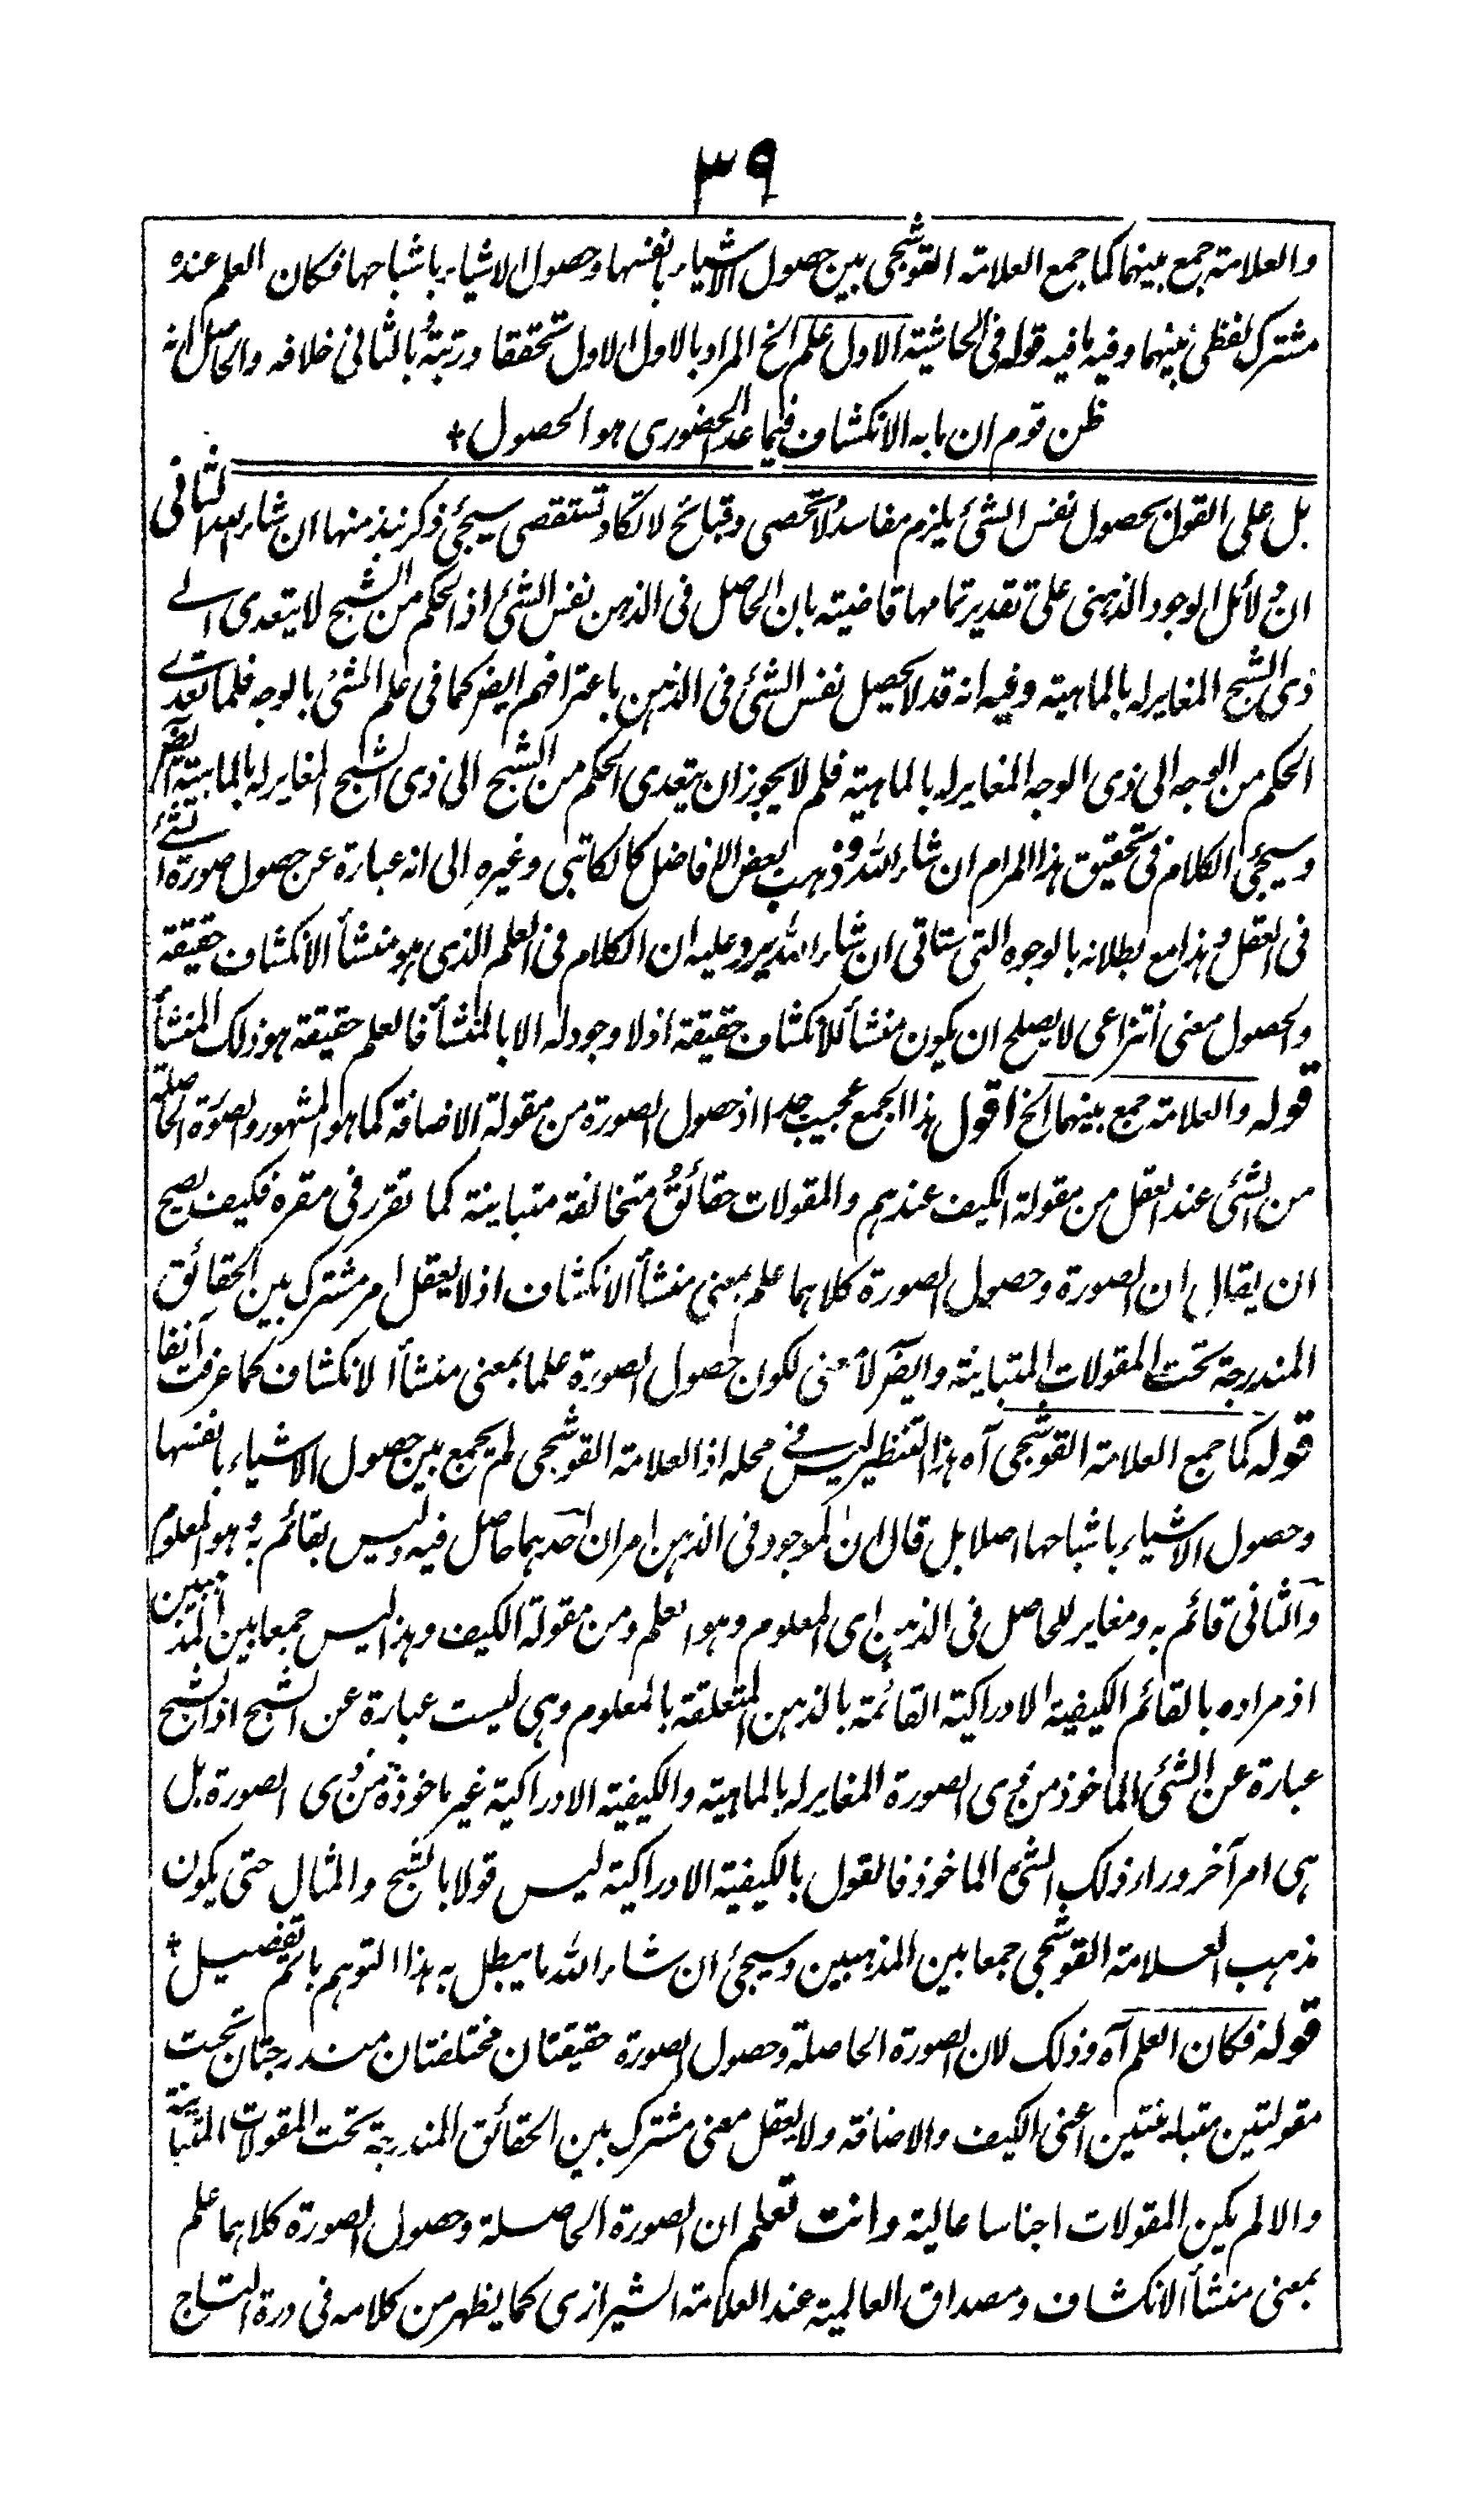 ٣٩
والعلامة جمع بينهما كما جمع العلامة القوشجى بين حصول الاشياء بانفسها وحصول الاشياء باشباحها فكان العلم عنده
مشترك لفظى بينهما وفيه ما فيه قوله فى الحاشية الاول علم الخ المراد بالاول الاول تحققا ورتبة وبالثانى خلافه والحاصل انه
ظن قوم ان ما به الانكشاف فيما عدا الحضورى هو الحصول +
بل على القول بحصول نفس الشئ يلزم مفاسد لا تحصى وقبائح لا تكاد تستقصى سيجئ ذكر نبذ منها ان شاء الله الثانى
ان دلائل الوجود الذهنى على تقدير تمامها قاضية بان الحاصل فى الذهن نفس الشئ اذ الحكم من الشبح لا يتعدى الى
ذى الشبح المغاير له بالماهية وفيه انه قد لا يحصل نفس الشئ فى الذهن باعترافهم ايضا كما فى علم الشئ بالوجه فلما تعدى
الحكم من الوجه الى ذى الوجه المغاير له بالماهية فلم لا يجوز ان يتعدى الحكم من الشبح الى ذى الشبح المغاير له بالماهية ايضا
وسيجئ الكلام فى تحقيق هذا المرام ان شاء الله وذهب بعض الافاضل كالكاتبى وغيره الى انه عبارة عن حصول صورة الشئ
فى العقل وهذا مع بطلانه بالوجوه التى ستاتى ان شاء الله يرد عليه ان الكلام فى العلم الذى هو منشأ الانكشاف حقيقة
والحصول معنى انتزاعى لا يصلح ان يكون منشأ للانكشاف حقيقة اذ لا وجود له الا بالمنشأ فالعلم حقيقة هو ذلك المنشأ
قوله والعلامة جمع بينهما الخ اقول هذا الجمع عجيب جدا اذ حصول الصورة من مقولة الاضافة كما هو المشهور والصورة الحاصلة
من الشئ عند العقل من مقولة الكيف عندهم والمقولات حقائق متخالفة متباينة كما تقرر فى مقره فكيف يصح
ان يقال ان الصورة وحصول الصورة كلاهما علم بمعنى منشأ الانكشاف اذ لا يعقل امر مشترك بين الحقائق
المندرجة تحت المقولات المتباينة وايضا لا معنى لكون حصول الصورة علما بمعنى منشأ الانكشاف كما عرفت آنفا
قوله كما جمع العلامة القوشجى آه هذا التنظير ليس فى محله اذ العلامة القوشجى لم يجمع بين حصول الاشياء بانفسها
وحصول الاشياء باشباحها اصلا بل قال ان الموجود فى الذهن امران احدهما حاصل فيه وليس بقائم به وهو المعلوم
والثانى قائم به ومغاير للحاصل فى الذهن اى المعلوم وهو العلم ومن مقولة الكيف وهذا ليس جمعا بين المذهبين
اذ مراده بالقائم الكيفية الادراكية القائمة بالذهن المتعلقة بالمعلوم وهى ليست عبارة عن الشبح اذ الشبح
عبارة عن الشئ الماخوذ من ذى الصورة المغاير له بالماهية والكيفية الادراكية غير ماخوذة من ذى الصورة بل
هى امر آخر وراء ذلك الشئ الماخوذ فالقول بالكيفية الادراكية ليس قولا بالشبح والمثال حتى يكون
مذهب العلامة القوشجى جمعا بين المذهبين وسيجئ ان شاء الله ما يبطل به هذا التوهم باتم تفصيل +
قوله فكان العلم آه وذلك لان الصورة الحاصلة وحصول الصورة حقيقتان مختلفتان مندرجتان تحت
مقولتين متباينتين اعنى الكيف والاضافة ولا يعقل معنى مشترك بين الحقائق المندرجة تحت المقولات المتباينة
والا لم يكن المقولات اجناسا عالية وانت تعلم ان الصورة الحاصلة وحصول الصورة كلاهما علم
بمعنى منشأ الانكشاف ومصداق العالمية عند العلامة الشيرازى كما يظهر من كلامه فى درة التاج